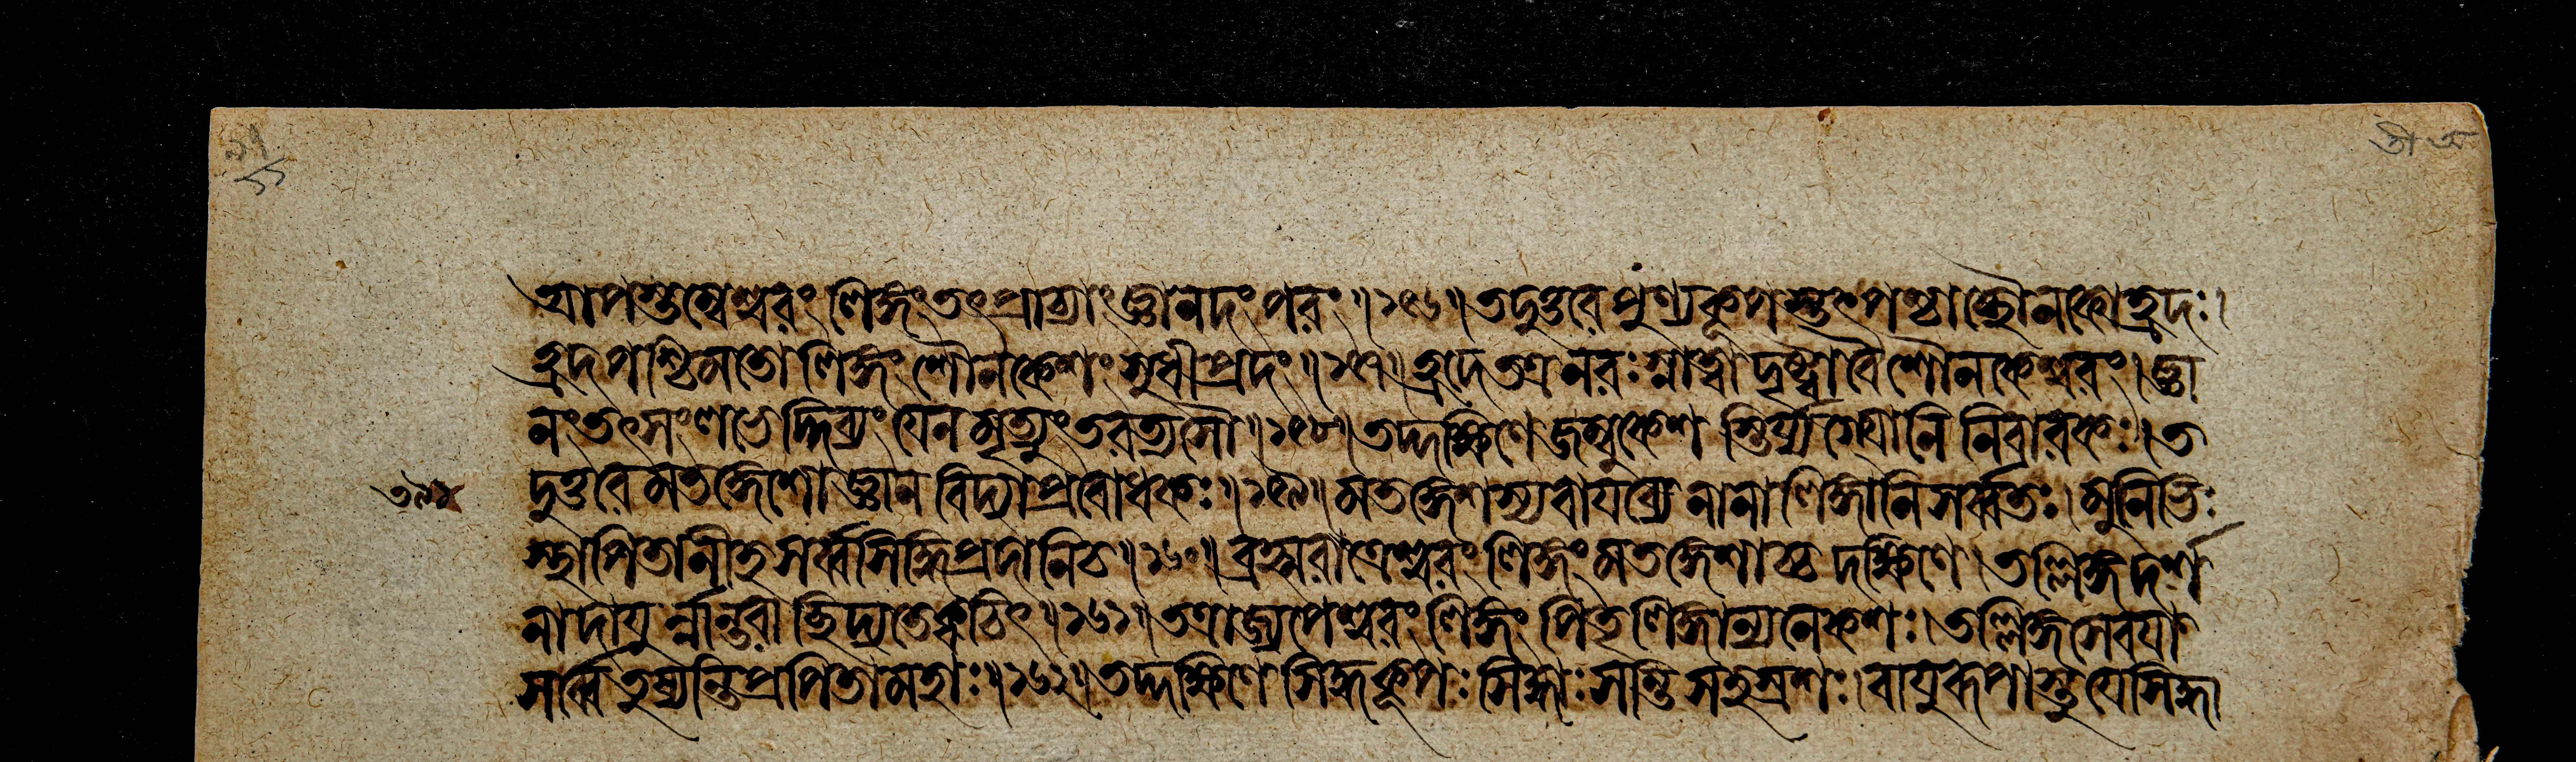 আপস্তম্বেশ্বরং লিঙ্গং তৎপ্রাচ্যাং জ্ঞানদং পরং ॥১৫৬॥ তদুত্তরে পুণ্যকূপস্তৎপশ্চাচ্ছৌনকো হ্রদঃ।
হ্রদপশ্চিমতো লিঙ্গং শৌনকেশং সুধীপ্রদং ॥১৫৭॥ হ্রদে তত্র নরঃ স্নাত্বা দৃষ্ট্বা বৈ শৌনকেশ্বরং। জ্ঞা
নং তৎ সংলভেদ্দিব্যং যেন মৃত্যুং তরত্যসৌ ॥১৫৮॥ তদ্দক্ষিণে জম্বুকেশ স্তির্য্যগ্যোনি নিবারকঃ। ত
দুত্তরে মতঙ্গেশো জ্ঞান বিদ্যা প্রবোধকঃ ॥১৫৯॥ মতঙ্গেশস্য বায়ব্যে নানা লিঙ্গানি সর্ব্বতঃ। মুনিভিঃ
স্থাপিতানীহ সর্ব্বসিদ্ধিপ্রদানি চ ॥১৬০॥ ব্রহ্মরাত্রেশ্বরং লিঙ্গং মতঙ্গেশাচ্চ দক্ষিণে। তল্লিঙ্গ দর্শ
নাদায়ু র্ন্নান্তরা ছিদ্যতে ক্বচিৎ ॥১৬১॥ তত্রাজ্যপেশ্বরং লিঙ্গং পিতৃলিঙ্গান্যনেকশঃ। তল্লিঙ্গসেবয়া
সর্ব্বে তুষ্যন্তি প্রপিতামহাঃ ॥১৬২॥ তদ্দক্ষিণে সিদ্ধকূপঃ সিদ্ধাঃ সন্তি সহস্রশঃ। বায়ুরূপাস্তু যে সিদ্ধা